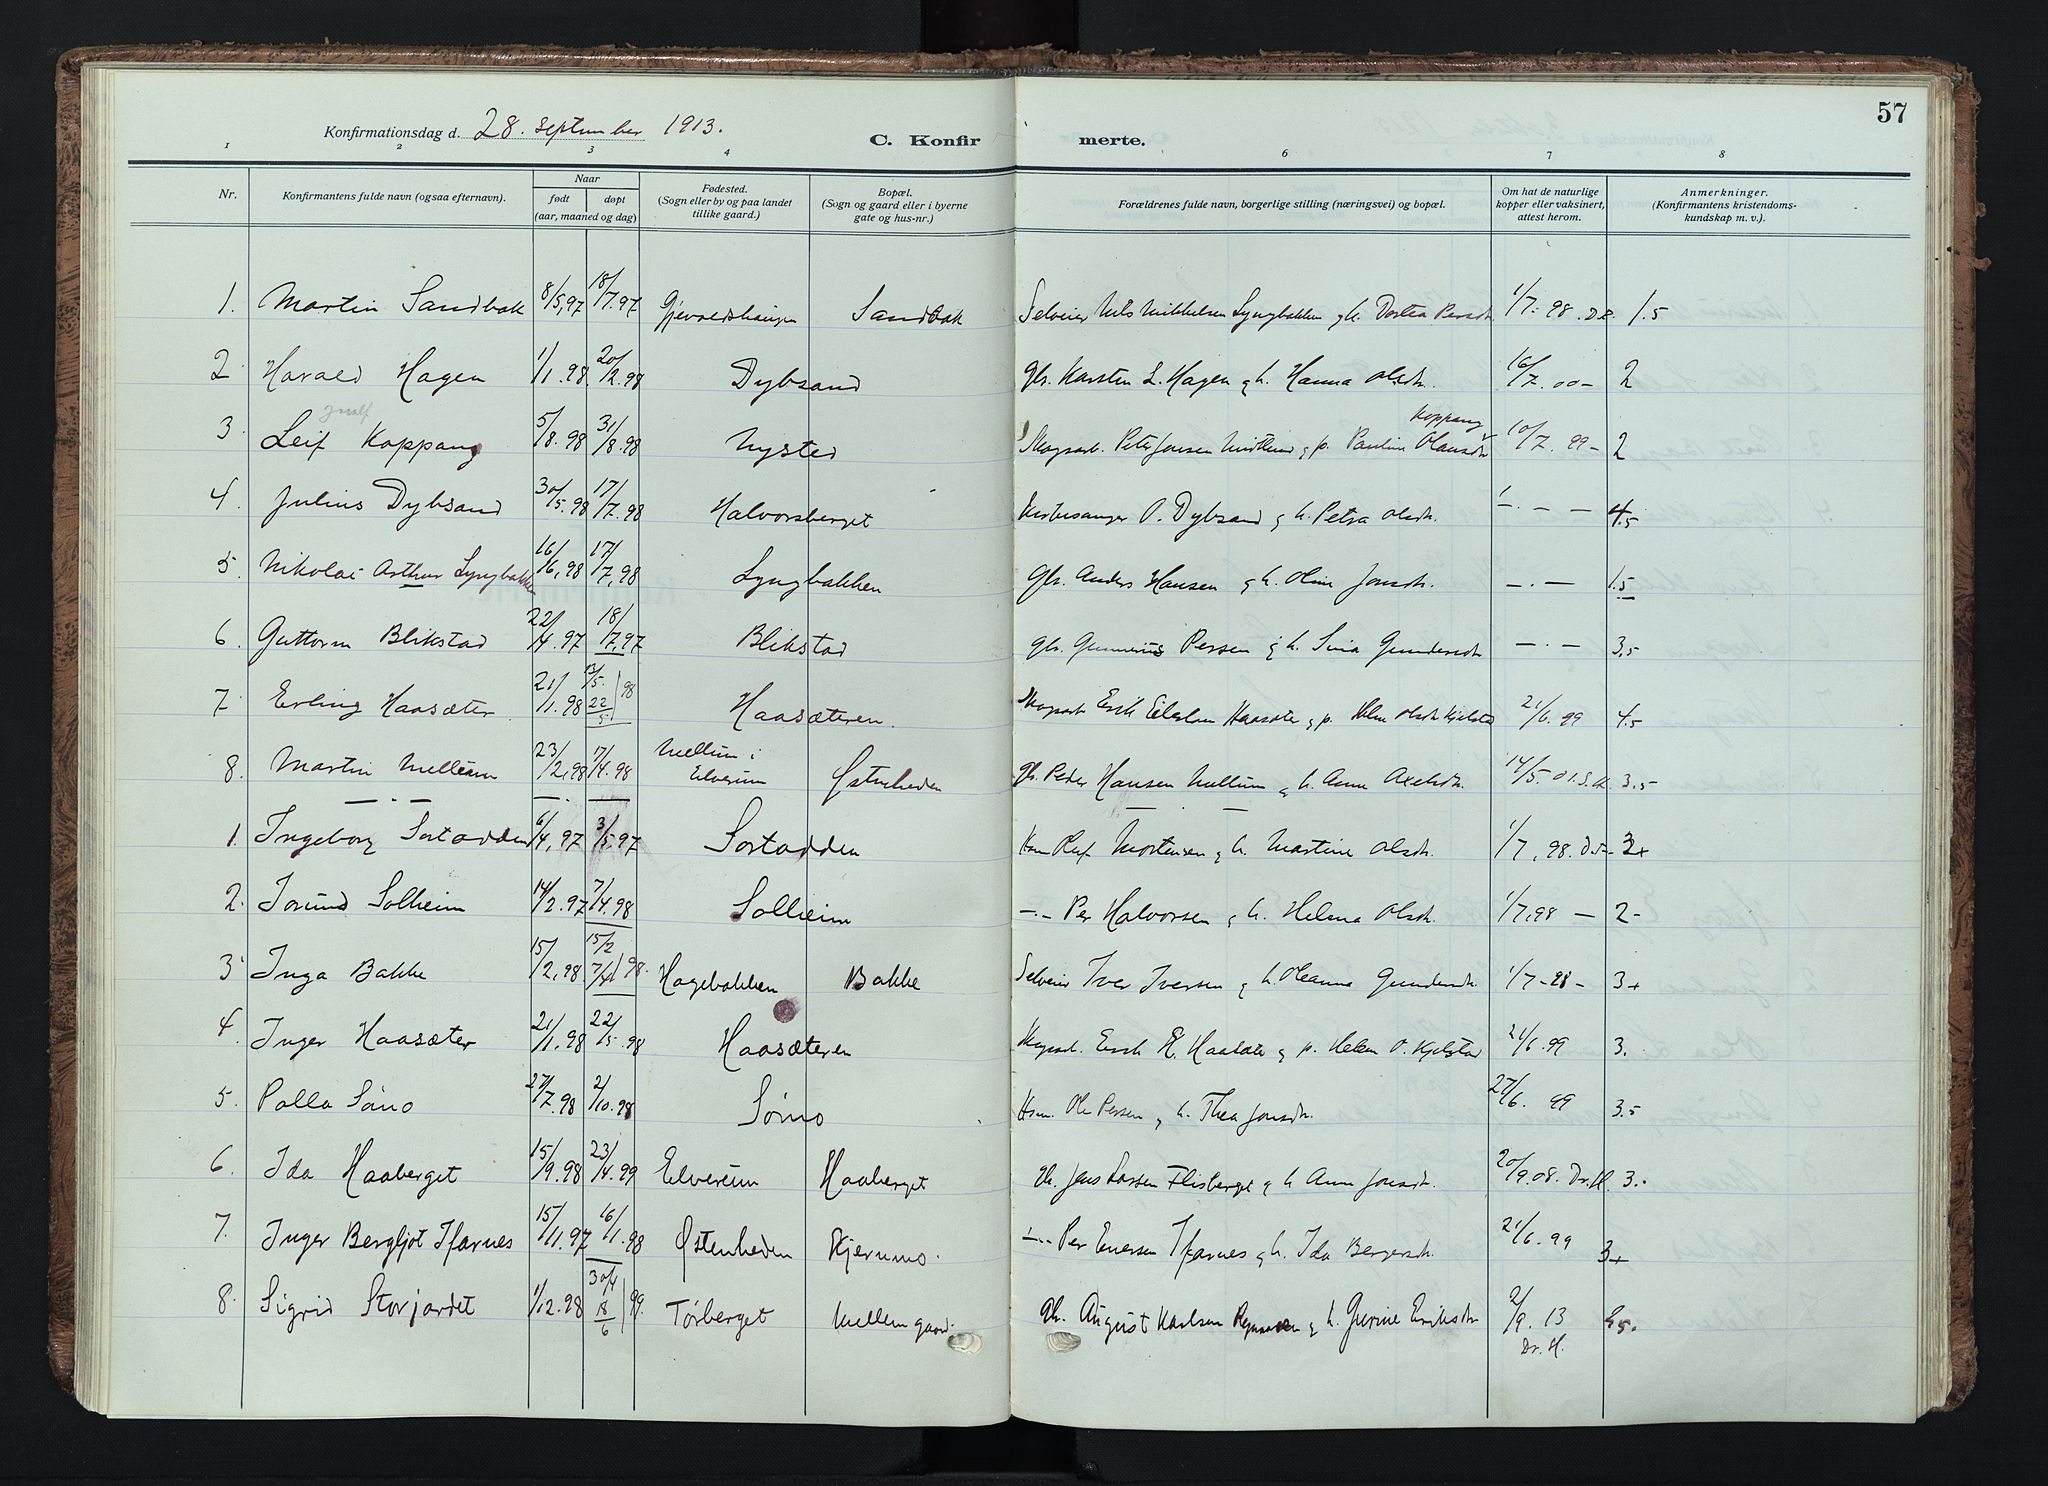 57
Konfirmationsdag d. 28. september 1913.
C. Konfirmerte.
1 2 3 4 5 6 7 8
Nr. Konfirmantens fulde navn (ogsaa efternavn). Naar født døpt (aar, maaned og dag) Fødested. (Sogn eller by og paa landet tillike gaard.) Bopæl. (Sogn og gaard eller i byerne gate og hus-nr.) Forældrenes fulde navn, borgerlige stilling (næringsvei) og bopæl. Om hat de naturlige kopper eller vaksinert, attest herom. Anmerkninger. (Konfirmantens kristendomskundskap m. v.).
1. Martin Sandbak 8/5,97 18/7.97 Sandbak Selveier Nils Mikkelsen Lyngbakken g h. Dortea Persdt. 1/7. 98. 1.5
2 Harald Hagen 1/1.98 20/2.98 Dybsand Gbr. Karsten L. Hagen g h. Hanna Olsdt. 16/7.00 - 2
3 Leif Koppang 5/8.98 31/8.98 Nysted Skogsarb. Peter Jonsen g p. Pauline Olausdt. Koppang 10/7.99 - 2
4. Julius Dybsand 30/5.98 17/7.98 Halvorsberget Kirkesanger O. Dybsand g h. Petra Olsdt. - . - - 4.5
5. Nikolai Arthur Lyngbakken 16/6,98 17/7,98 Lyngbakken Gbr. Anders Hansen g h. Oline Jonsdt. - . - 1.5
6. Guttorm Blikstad 22/4.97 18/7,97 Blikstad Gbr. Gunnerius Persen g h. Sina Gundersdt. - . - 3.5
7. Erling Haasæter 21/1.98 13/5. 22/5 98 Haasæteren. Skogsarb. Erik Haasæter g p. Helen Olsdt. Kjelstad 21/6.99 4.5
8. Martin Mellum 23/2,98 17/4.98 Mellum i Elverum Østenheden Gb. Peder Hansen Mellum g h. Anne Axelsdt. 14/5.01. 3.5
1. Ingeborg Sortodden 6/4,97 3/5.97 Sortodden Hsm. Oluf Mortensen g h. Martine Olsdt. 1/7,98. 3+
2. Jorund Solheim 14/2.97 7/4.98 Solheim - . - Per Halvorsen g h. Helena Olsdt. 1/7,98 - 2-
3. Inga Bakke 15/2,98 15/2 7/4 98. Hagebakken Bakke Selveier Iver Iversen g h. Oleanna Gundersdt. 1/7-98 - 3+
4. Inger Haasæter 21/1,98 22/5 98 Haasæteren Skogsarb. Erik E. Haasæter g p. Helen O. Kjelstad 21/6.99 3.
5. Palla Sørmo 27/7.98 2/10.98 Sørmo Hsm. Ole Persen g h. Thea Jonsdt. 27/6. 99 3.5
6. Ida Haaberget 15/9.98 23/4.99 Elverum Haaberget Gb. Jens Larsen Flisberget g h Anne Jonsdt. 20/9.08. Dr. H. 3.
7. Inger Bergljot Ifarnes 15/11,97 16/1.98 Østenheden Kjernmo. - . - Per Enersen Ifarnes g h. Ida Bergersdt. 21/6.99 3+
8. Sigrid Storjordet 1/12.98 30/4 18/6 99. Tørberget Mellemgaard. Gb. August Karlsen g h. Gurine Eriksdt. 2/9. 13 Dr. H.